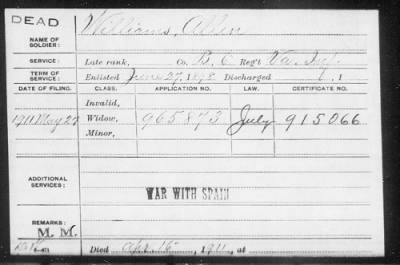 DEAD
Williams, Allen
NAME OF SOLDIER:
SERVICE: Late rank, Co. B, 6 Reg't Va. Inf.
TERM OF SERVICE: Enlisted June 27, 1898 Discharged , 1
DATE OF FILING. CLASS. APPLICATION NO. LAW. CERTIFICATE NO.
Invalid,
1911 May 27 Widow, 965873 July 915066
Minor,
ADDITIONAL SERVICES:
WAR WITH SPAIN
REMARKS:
M. M.
Died Apr. 15, 1911, at